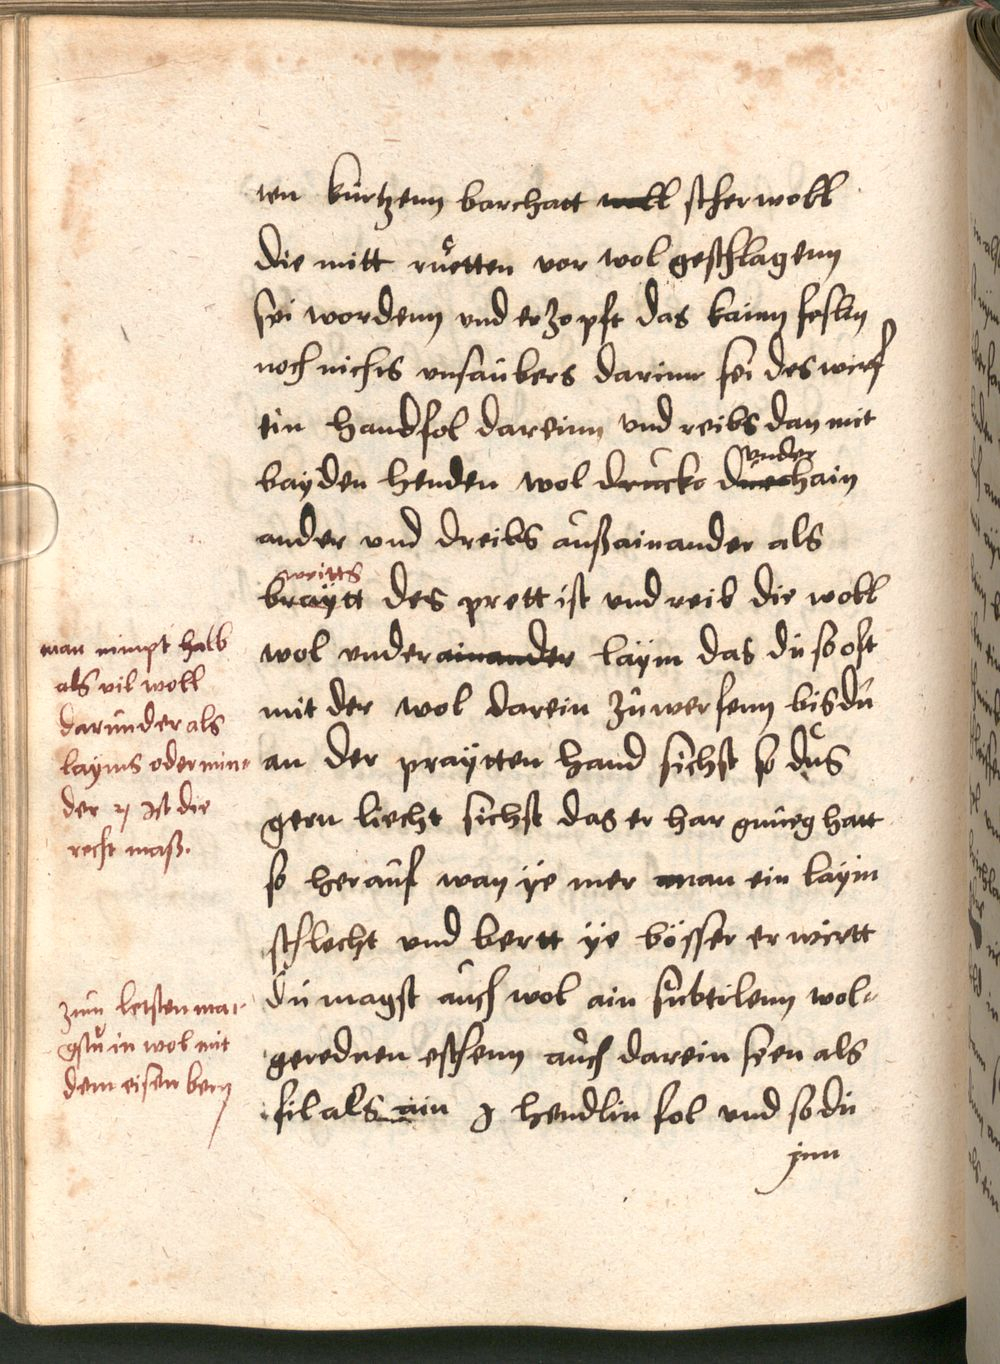 ten kürtzenn barchatt woll scherwoll
die mitt rüetten vor wol geschlagenn
sei wordenn und erzopft das kainn feslin
noch nichs unsaubers darinn sei des wirf
ein handfol dareinn und reibs dan mit
under
bayden henden wol drucko durchain
ander und dreibs außainander als
writts
braytt des prett ist und reib die woll
wol underainander laÿm das du so oft
mit der wol darein zuwerfenn bis du
an der praÿtten hand sichst so dus
gern liecht sichst das er har gnueg hatt
so herauf wan ÿe mer man ein laÿm
schlecht und bertt ÿe bösser er wirtt
du magst auch wol ain subtilenn wol-
gerednen eschenn auch darein seen als
fil als ain J hendlin fol und so du
jnn
man nimpt halb
als vil woll
darunder als
layms oder min-
der ist die
recht maß.
zum letsten ma-
gstu in wol mit
dem eisen bern